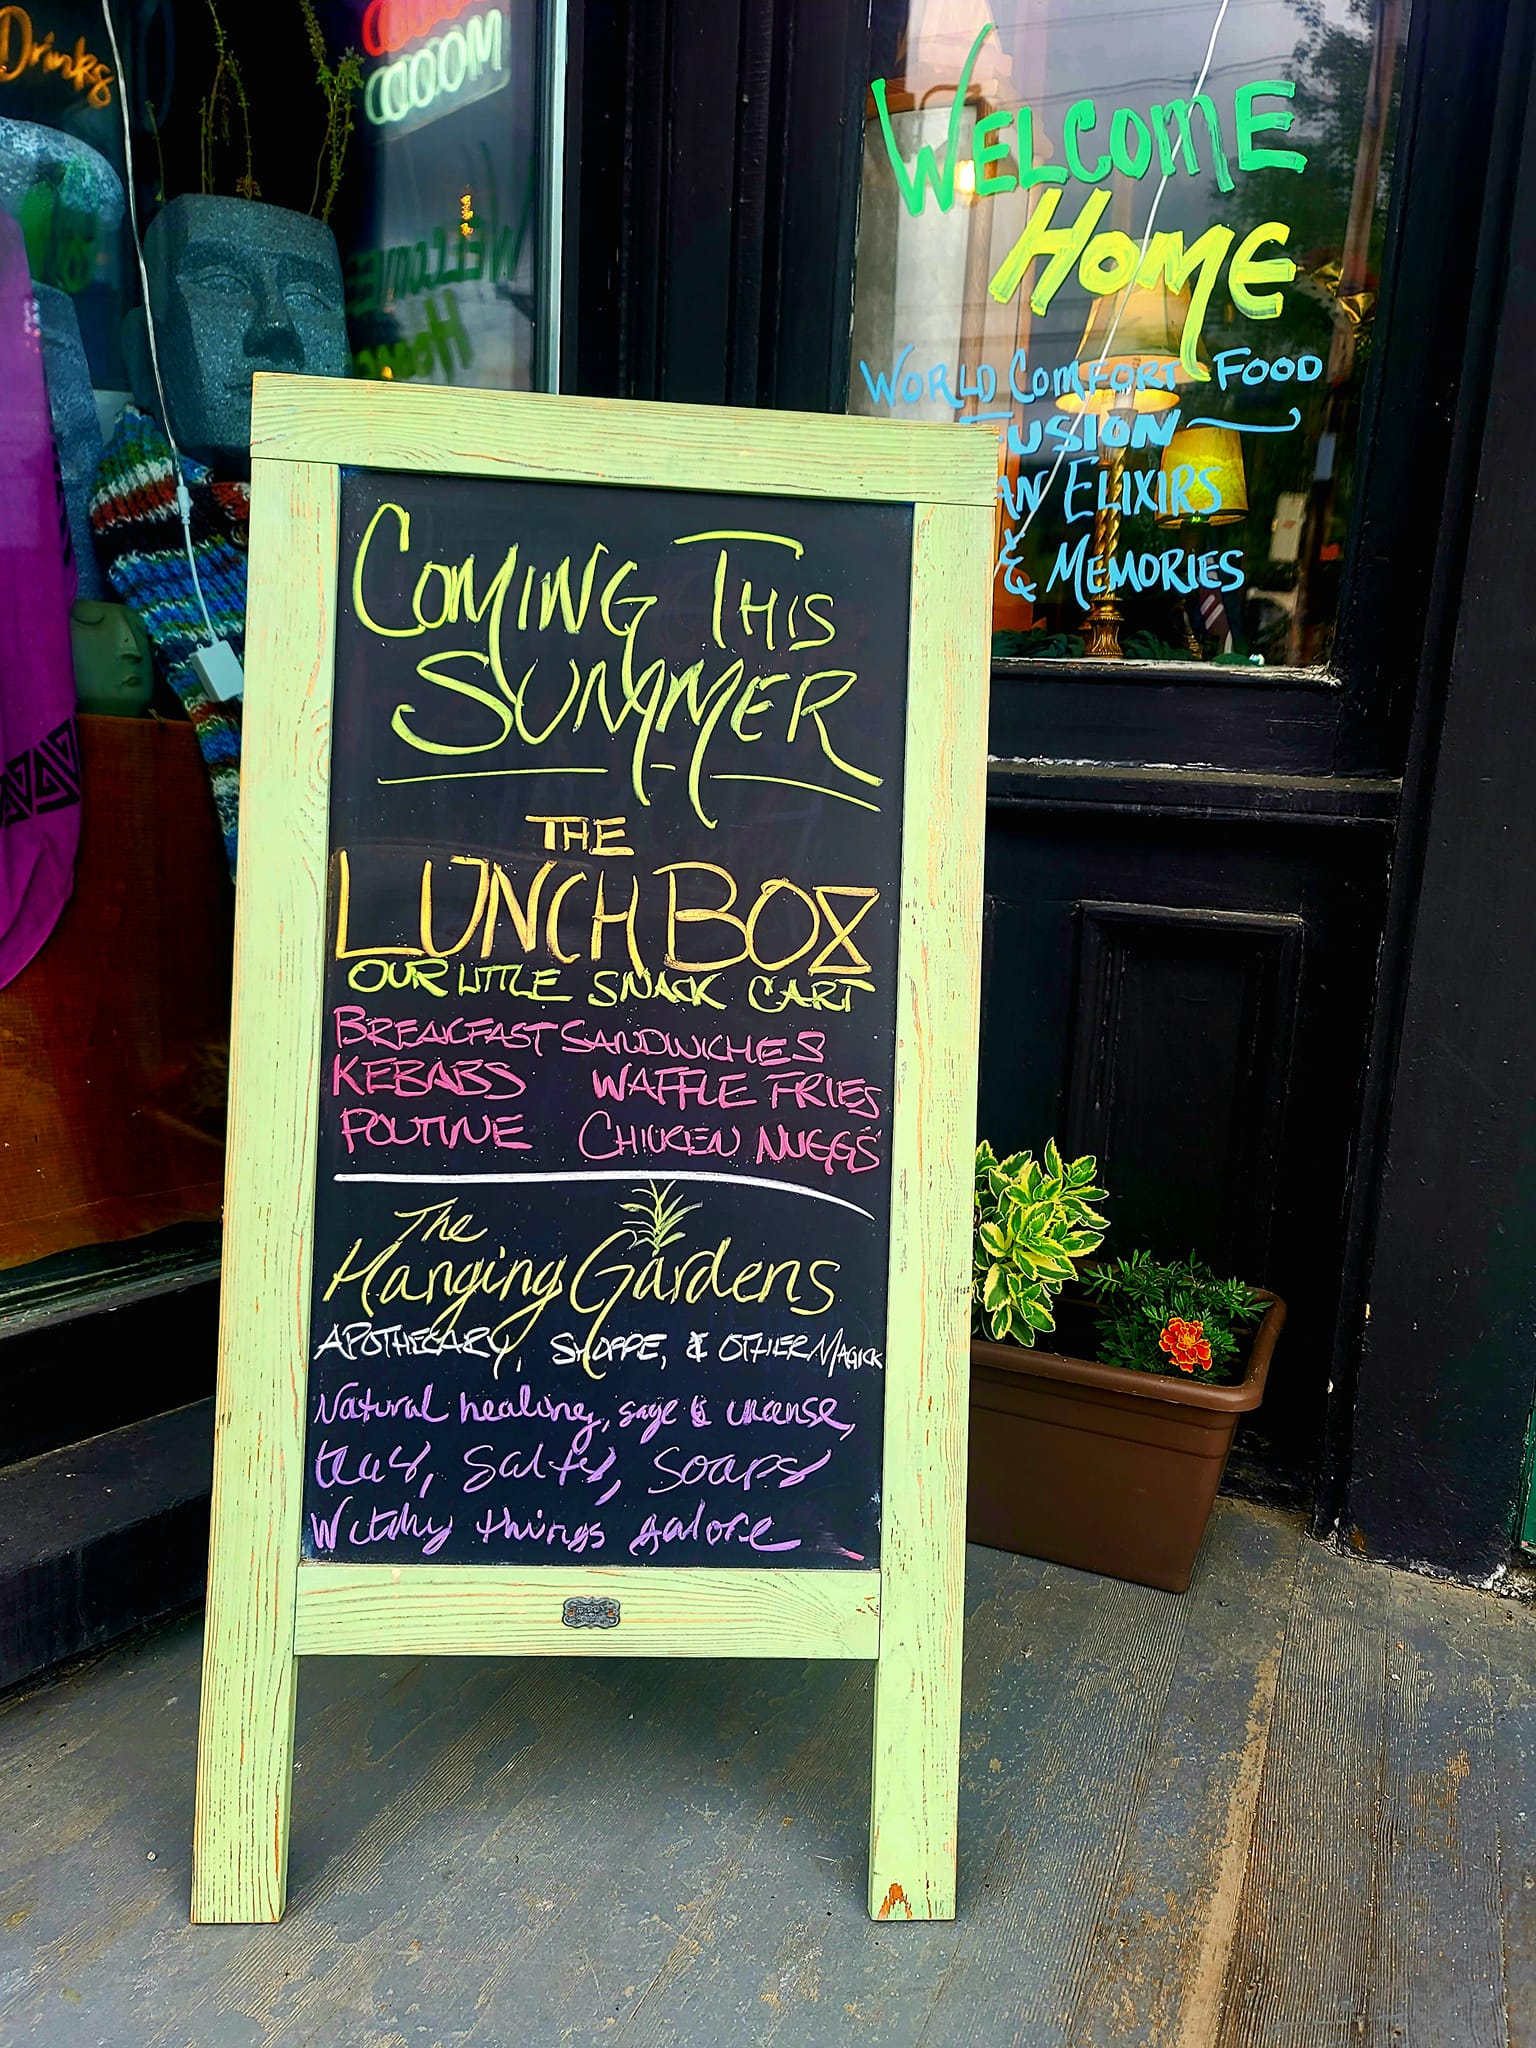 Drinks
MOOOD
WELCOME
HOME
WORLD COMFORT FOOD
FUSION
AN ELIXIRS
& MEMORIES
COMING THIS
SUMMER
THE
LUNCH BOX
OUR LITTLE SNACK CART
BREAKFAST SANDWICHES
KEBABS WAFFLE FRIES
POUTINE CHICKEN NUGGS
The
Hanging Gardens
APOTHECARY, SHOPPE, & OTHER MAGICK
Natural healing, sage & incense,
teas, salts, soaps
Witchy things galore